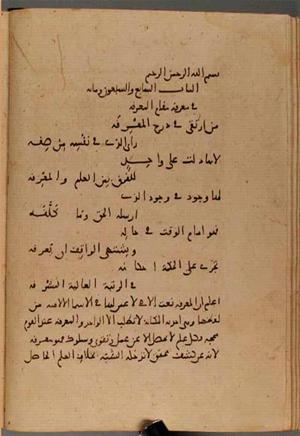 بسم الله الرحمن الرحيم
الباب السابع والسبعون ومائة
في معرفة مقام المعرفة
من ارتقى في درج المعرفه
رأى الذي في نفسه من صفه
لانها دلت على واحد
للفرق بين العلم والمعرفه
لها وجود في وجود الذي
ارسله الحق وما كلفه
فهو امام الوقت في حاله
ويشتهي الواقف ان يعرفه
تجري على الحكمة احكامه
في الرتبة العالية المشرفه
اعلم ان المعرفة نعت الهي لا عين لها في الاسما الالهيه من
لفظها وهي احدية المكانة لا تطلب الا الواحد والمعرفة عند القوم
محجه وكل علم لا يحصل الا عن عمل وتقوى وسلوك فهو معرفه
لانه عن كشف محقق لا تدخله الشبه بخلاف العلم الحاصل